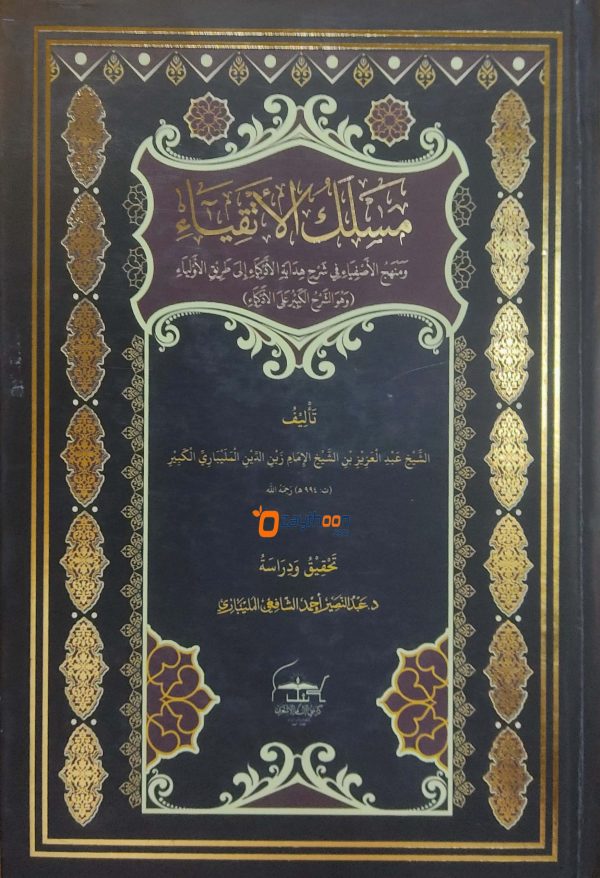 مَسْلَكُ الأَتْقِيَاءِ
وَمَنْهَجُ الأَصْفِيَاءِ فِي شَرْحِ هِدَايَةِ الأَذْكِيَاءِ إِلَى طَرِيقِ الأَوْلِيَاءِ
(وَهُوَ الشَّرْحُ الكَبِيْرُ عَلَى الأَذْكِيَاءِ)
تَأْلِيْفُ
الشَّيْخ عَبْدِ الْعَزِيْزِ بْنِ الشَّيْخِ الإِمَامِ زَيْنِ الدِّيْنِ الْمَلَيْبَارِيِّ الْكَبِيْرِ
(ت: ٩٩٤ ه) رَحِمَهُ اللّٰه
zaythoon
تَحْقِيْقُ وَدِرَاسَةُ
د. عَبْدُ النَّصِيْر أَحْمَد الشَّافِعِي المَلَيْبَارِي